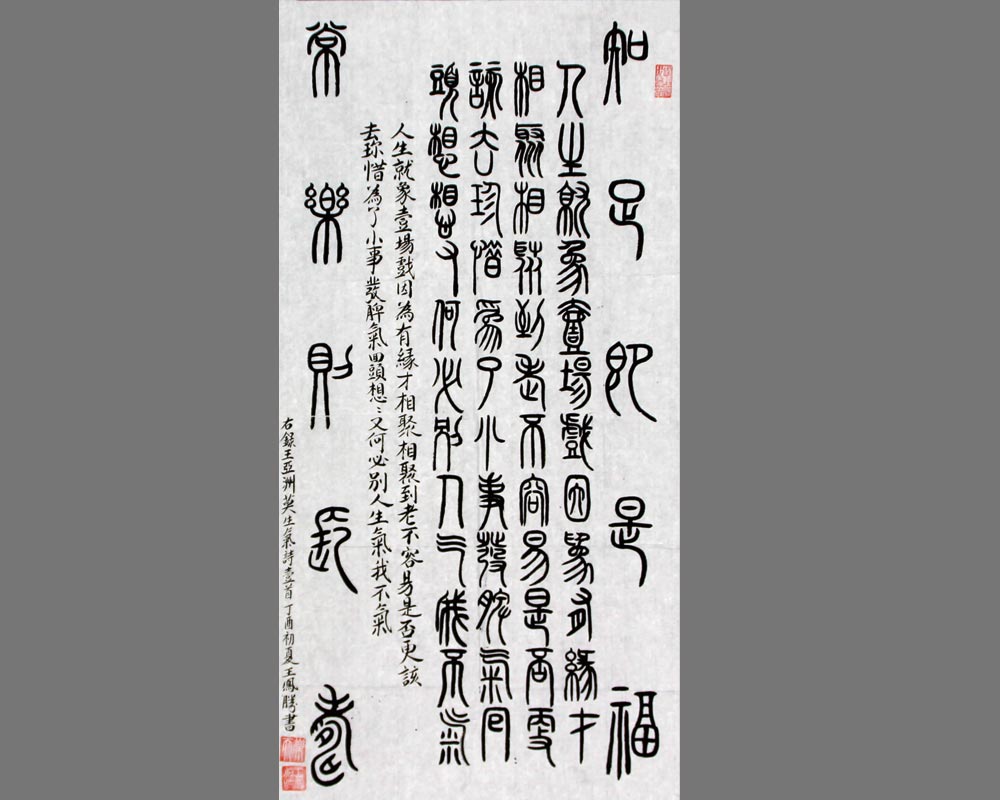 知足即是福
人生就象壹場戲因為有緣才
相聚相聚到老不容易是否更
該去珍惜為了小事發脾氣回
頭想想又何必別人生氣我不氣
人生就象壹場戲因為有緣才相聚相聚到老不容易是否更該
去珍惜為了小事發脾氣回頭想〻又何必別人生氣我不氣
常樂則長壽
右錄王亞洲莫生氣詩壹首丁酉初夏王鳳勝書